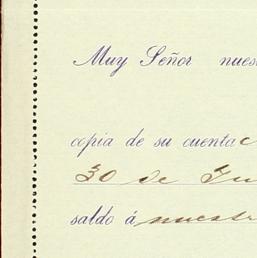 Muy Señor nues
copia de su cuenta c
30 de Ju
saldo á nuestr